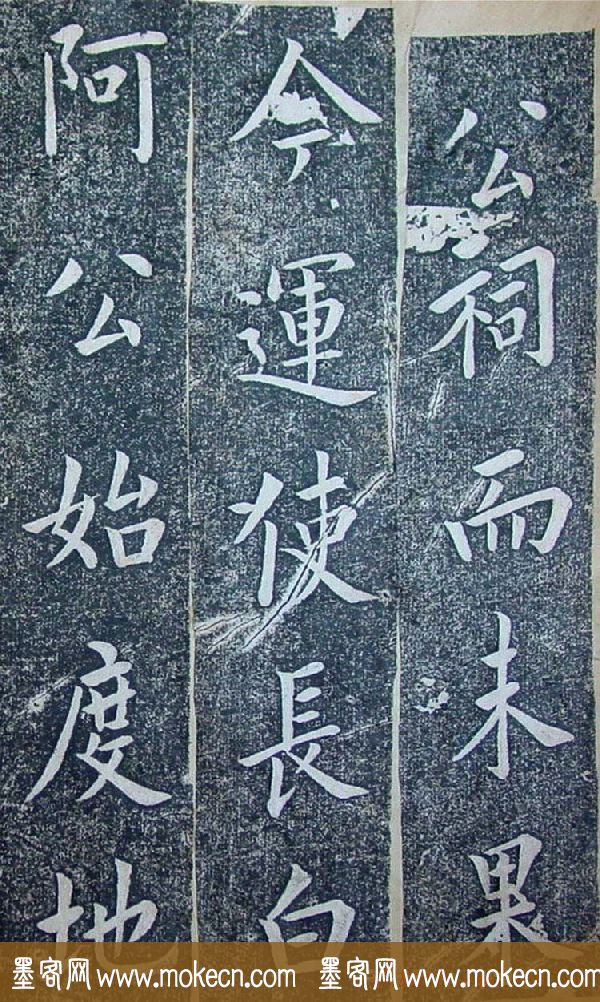 公祠而未果
今運使長白
阿公始度地
墨客网www.mokecn.com 墨客网www.mokecn.com